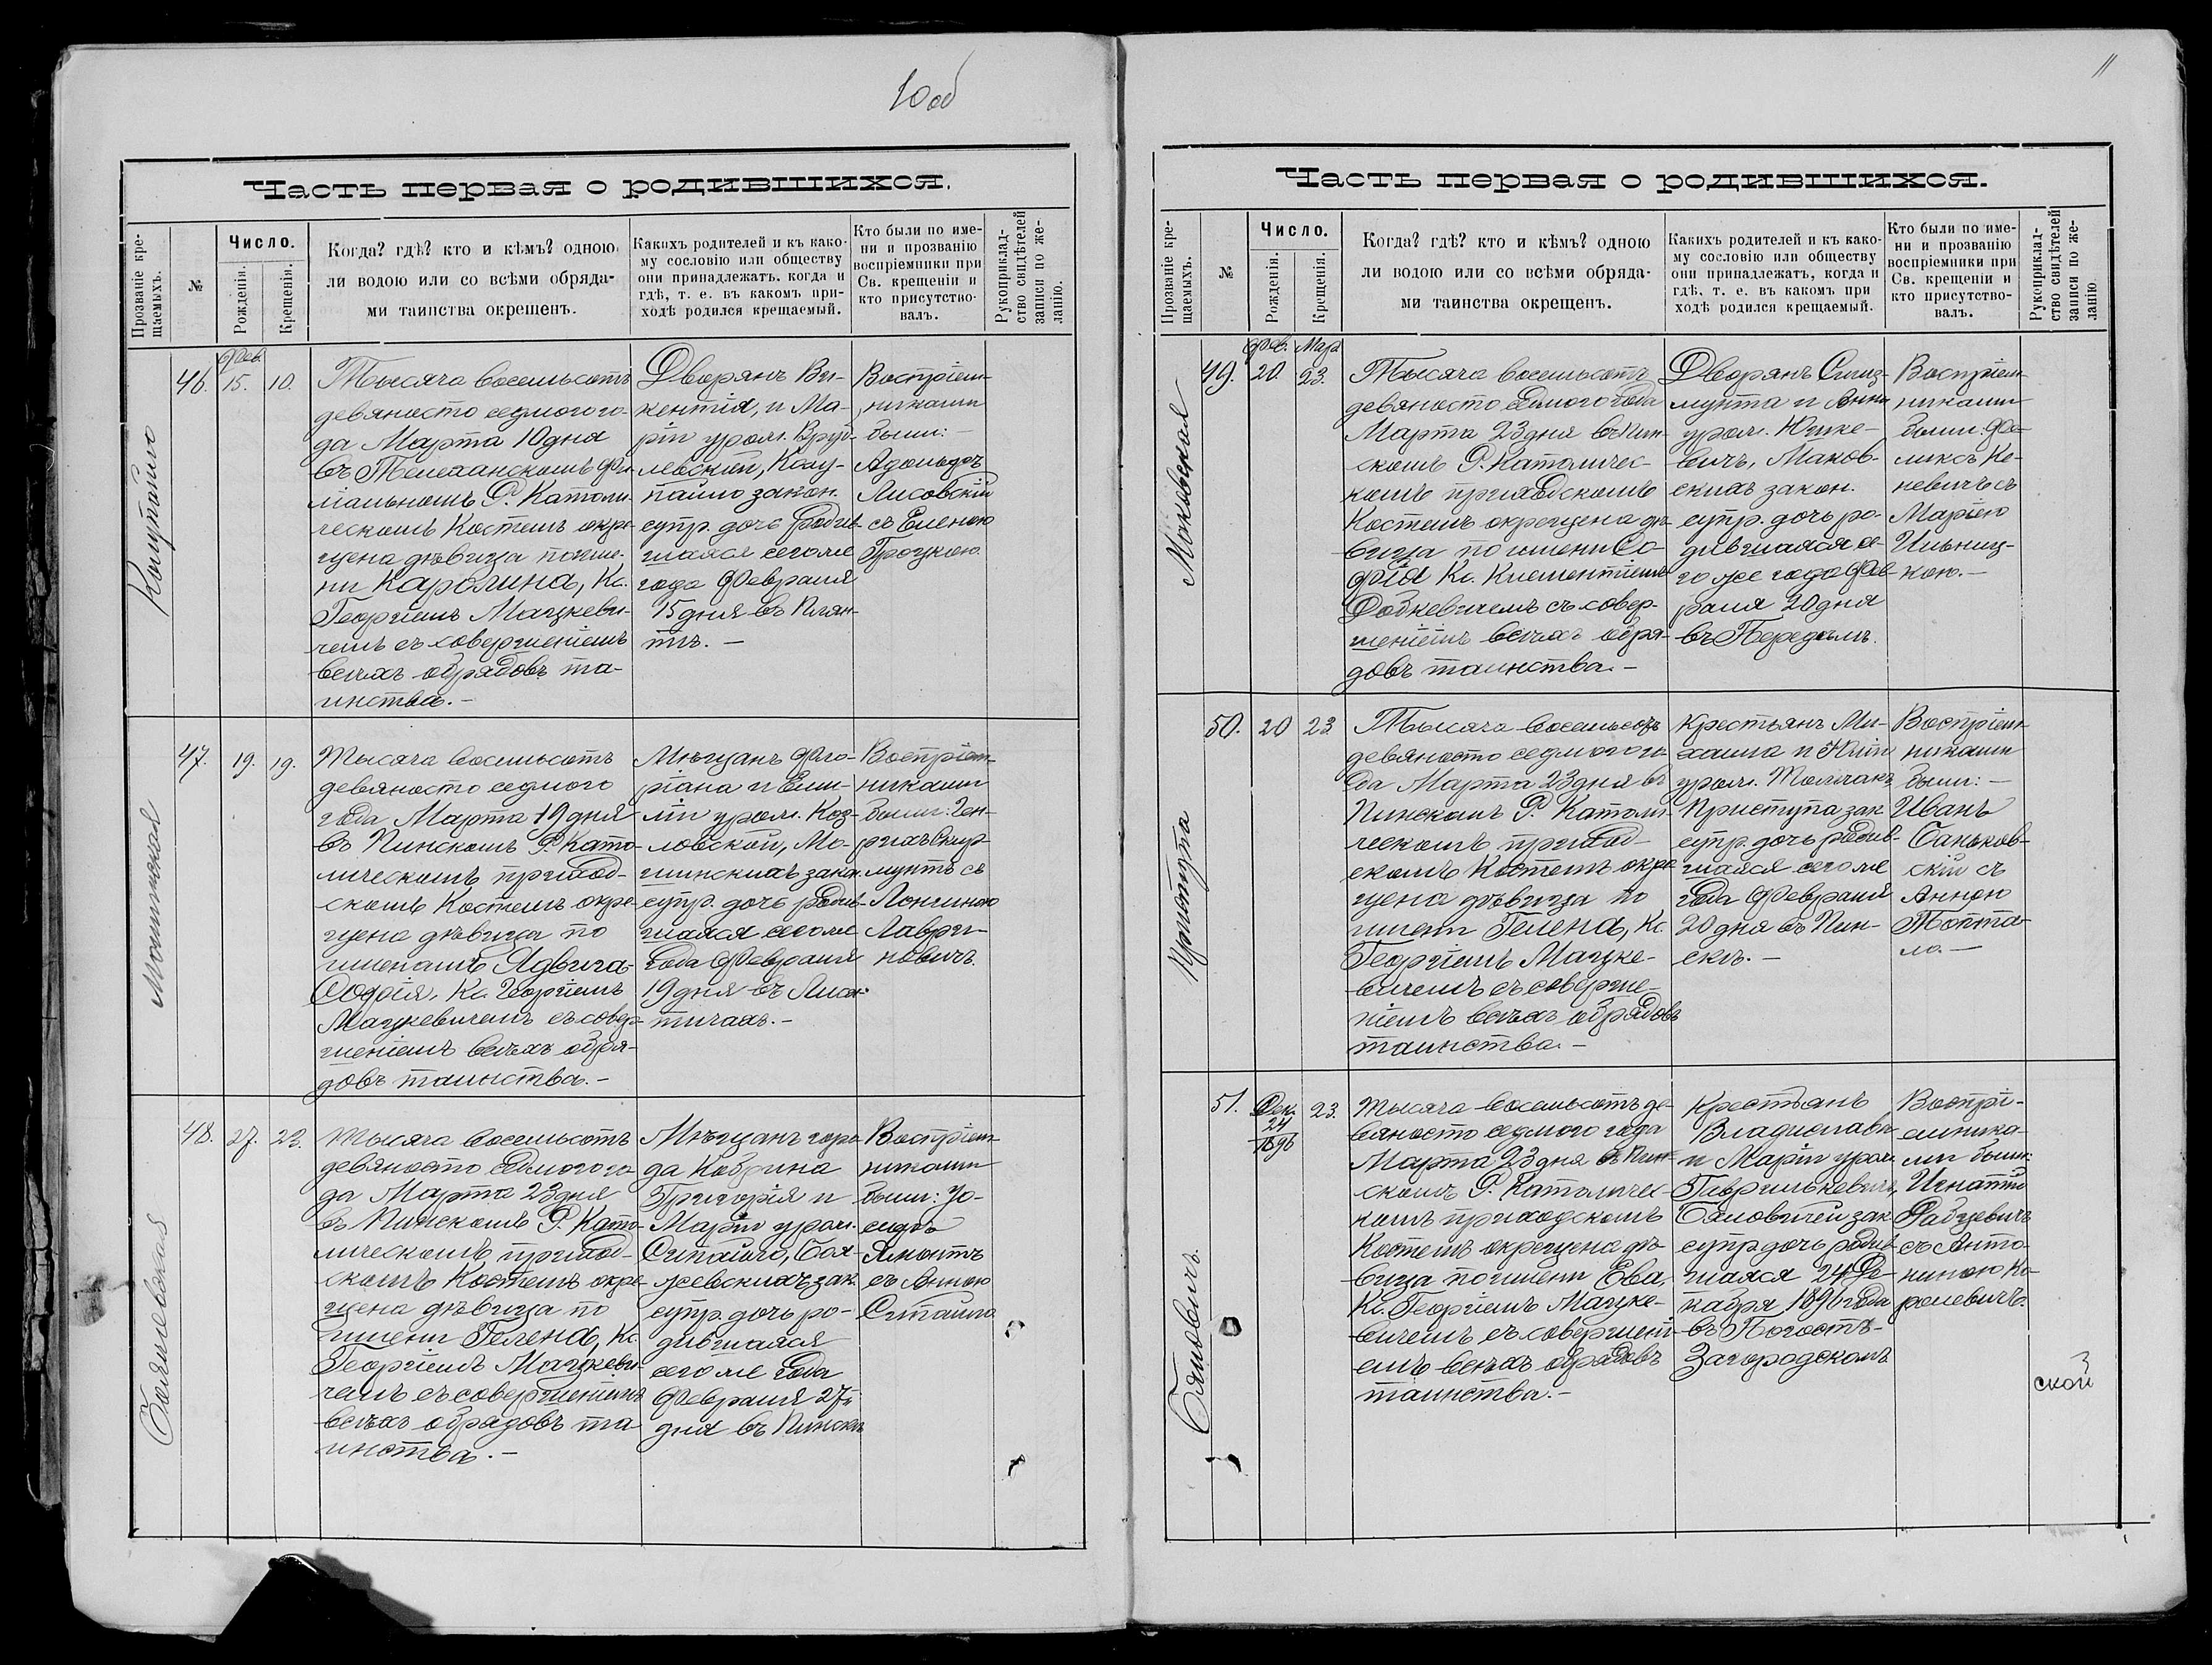 10 об
Часть первая о родившихся.
Прозваніе кре-
щаемыхъ.
№
Число.
Рожденія.
Крещенія.
Когда? гдѣ? кто и кѣмъ? одною
ли водою или со всѣми обряда-
ми таинства окрещенъ.
Какихъ родителей и къ како-
му сословію или обществу
они принадлежатъ, когда и
гдѣ, т. е. въ какомъ при-
ходѣ родился крещаемый.
Кто были по име-
ни и прозванію
воспріемники при
Св. крещеніи и
кто присутство-
валъ.
Рукоприклад-
ство свидѣтелей
записи по же-
ланію.
Колупайло
46.
Фев.
15.
10.
Тысяча восемьсотъ
девяносто седмого го-
да Марта 10 дня
въ Телеханскомъ Фи-
ліальномъ Р. Католи-
ческомъ Костелѣ окре-
щена дѣвица по име-
ни Каролина, Кс.
Георгіемъ Мацкеви-
чемъ съ совершеніемъ
всѣхъ обрядовъ та-
инства.-
Дворянъ Ви-
кентія, и Ма-
ріи урож. Вруб-
левской, Колу-
пайло закон.
супр. дочь родив-
шаяся сего же
года Февраля
15 дня въ Плян-
тѣ.-
Воспріем-
никами
были:-
Адольфъ
Лисовскій
съ Еленою
Троцкою.
Мошинская
47.
19.
19.
Тысяча восемьсотъ
девяносто седмого
года Марта 19 дня
въ Пинскомъ Р. Като-
лическомъ приход-
скомъ Костелѣ окре-
щена дѣвица по
именамъ Ядвига-
Софія, Кс. Георгіемъ
Мацкевичемъ съ совер-
шеніемъ всѣхъ обря-
довъ таинства.-
Мѣщанъ Фло-
ріана и Еми-
ліи урож. Коз-
ловской, Мо-
шинскихъ закон.
супр. дочь родив-
шаяся сего же
года Февраля
19 дня въ
Воспріем-
никами
были: Ген-
рихъ Скир-
мунтъ съ
Лонгиною
Лаври-
новичъ.
Бояжевская
48.
27.
23.
Тысяча восемьсотъ
девяносто седмого го-
да Марта 23 дня
въ Пинскомъ Р. Като-
лическомъ приход-
скомъ Костелѣ окре-
щена дѣвица по
имени Гелена, Кс.
Георгіемъ Мацкеви-
чемъ съ совершеніемъ
всѣхъ обрядовъ та-
инства.-
Мѣщанъ горо-
да Кобрина
Григорія и
Маріи урож.
Ситайло, Боя-
жевскихъ зак.
супр. дочь ро-
дившаяся
сего же года
Февраля 27
дня въ Пинскѣ
Воспріем-
никами
были: Іо-
сифъ
Ямонтъ
съ Анною
Ситайло.
11
Часть первая о родившихся.
Прозваніе кре-
щаемыхъ.
№
Число.
Рожденія.
Крещенія.
Когда? гдѣ? кто и кѣмъ? одною
ли водою или со всѣми обряда-
ми таинства окрещенъ.
Какихъ родителей и къ како-
му сословію или обществу
они принадлежатъ, когда и
гдѣ, т. е. въ какомъ при
ходѣ родился крещаемый.
Кто были по име-
ни и прозванію
воспріемники при
Св. крещеніи и
кто присутство-
валъ.
Рукоприклад-
ство свидѣтелей
записи по же-
ланію.
Маковская
49.
Фев.
20.
Мар.
23.
Тысяча восемьсотъ
девяносто седмого года
Марта 23 дня въ Пин-
скомъ Р. Католичес-
комъ приходскомъ
Костелѣ окрещена дѣ-
вица по имени Со-
фія Кс. Климентіемъ
Добкевичемъ съ совер-
шеніемъ всѣхъ обря-
довъ таинства.-
Дворянъ Сигиз-
мунта и Анны
урож. Юшке-
вичъ, Маков-
скихъ закон.
супр. дочь ро-
дившаяся се-
го же года Фев-
раля 20 дня
въ
Воспріем-
никами
были: Фе-
ликсъ Ке-
невичъ съ
Маріею
Ильниц-
кою.-
Приступа
50.
20
23
Тысяча восемьсотъ
девяносто седмого го-
да Марта 23 дня въ
Пинскомъ Р. Католи-
ческомъ приход-
скомъ Костелѣ окре-
щена дѣвица по
имени Гелена, Кс.
Георгіемъ Мацке-
вичемъ съ соверше-
ніемъ всѣхъ обрядовъ
таинства.-
Крестьянъ Ми-
хаила и Юліи
урож. Толочко
Приступа зак.
супр. дочь родив-
шаяся сего же
года Февраля
20 дня въ Пин-
скѣ.-
Воспріем-
никами
были:-
Иванъ
Баньков-
скій съ
Анною
Топта-
ло.-
Бямовичъ.
51.
Дек.
24
1896
23.
Тысяча восемьсотъ де-
вяносто седмого года
Марта 23 дня въ Пин-
скомъ Р. Католичес-
комъ приходскомъ
Костелѣ окрещена дѣ-
вица по имени Ева,
Кс. Георгіемъ Мацке-
вичемъ съ совершені-
емъ всѣхъ обрядовъ
таинства.-
Крестьянъ
Владислава
и Маріи урож.
Гаврилькевичъ,
Бямовичей зак.
супр. дочь родив-
шаяся 24 Де-
кабря 1896 года
въ Погостѣ-
Загородскомъ
Воспрі-
емника-
ми были:
Игнатій
Рабцевичъ
съ Анто-
ниною Ко-
ролевичъ.
ской